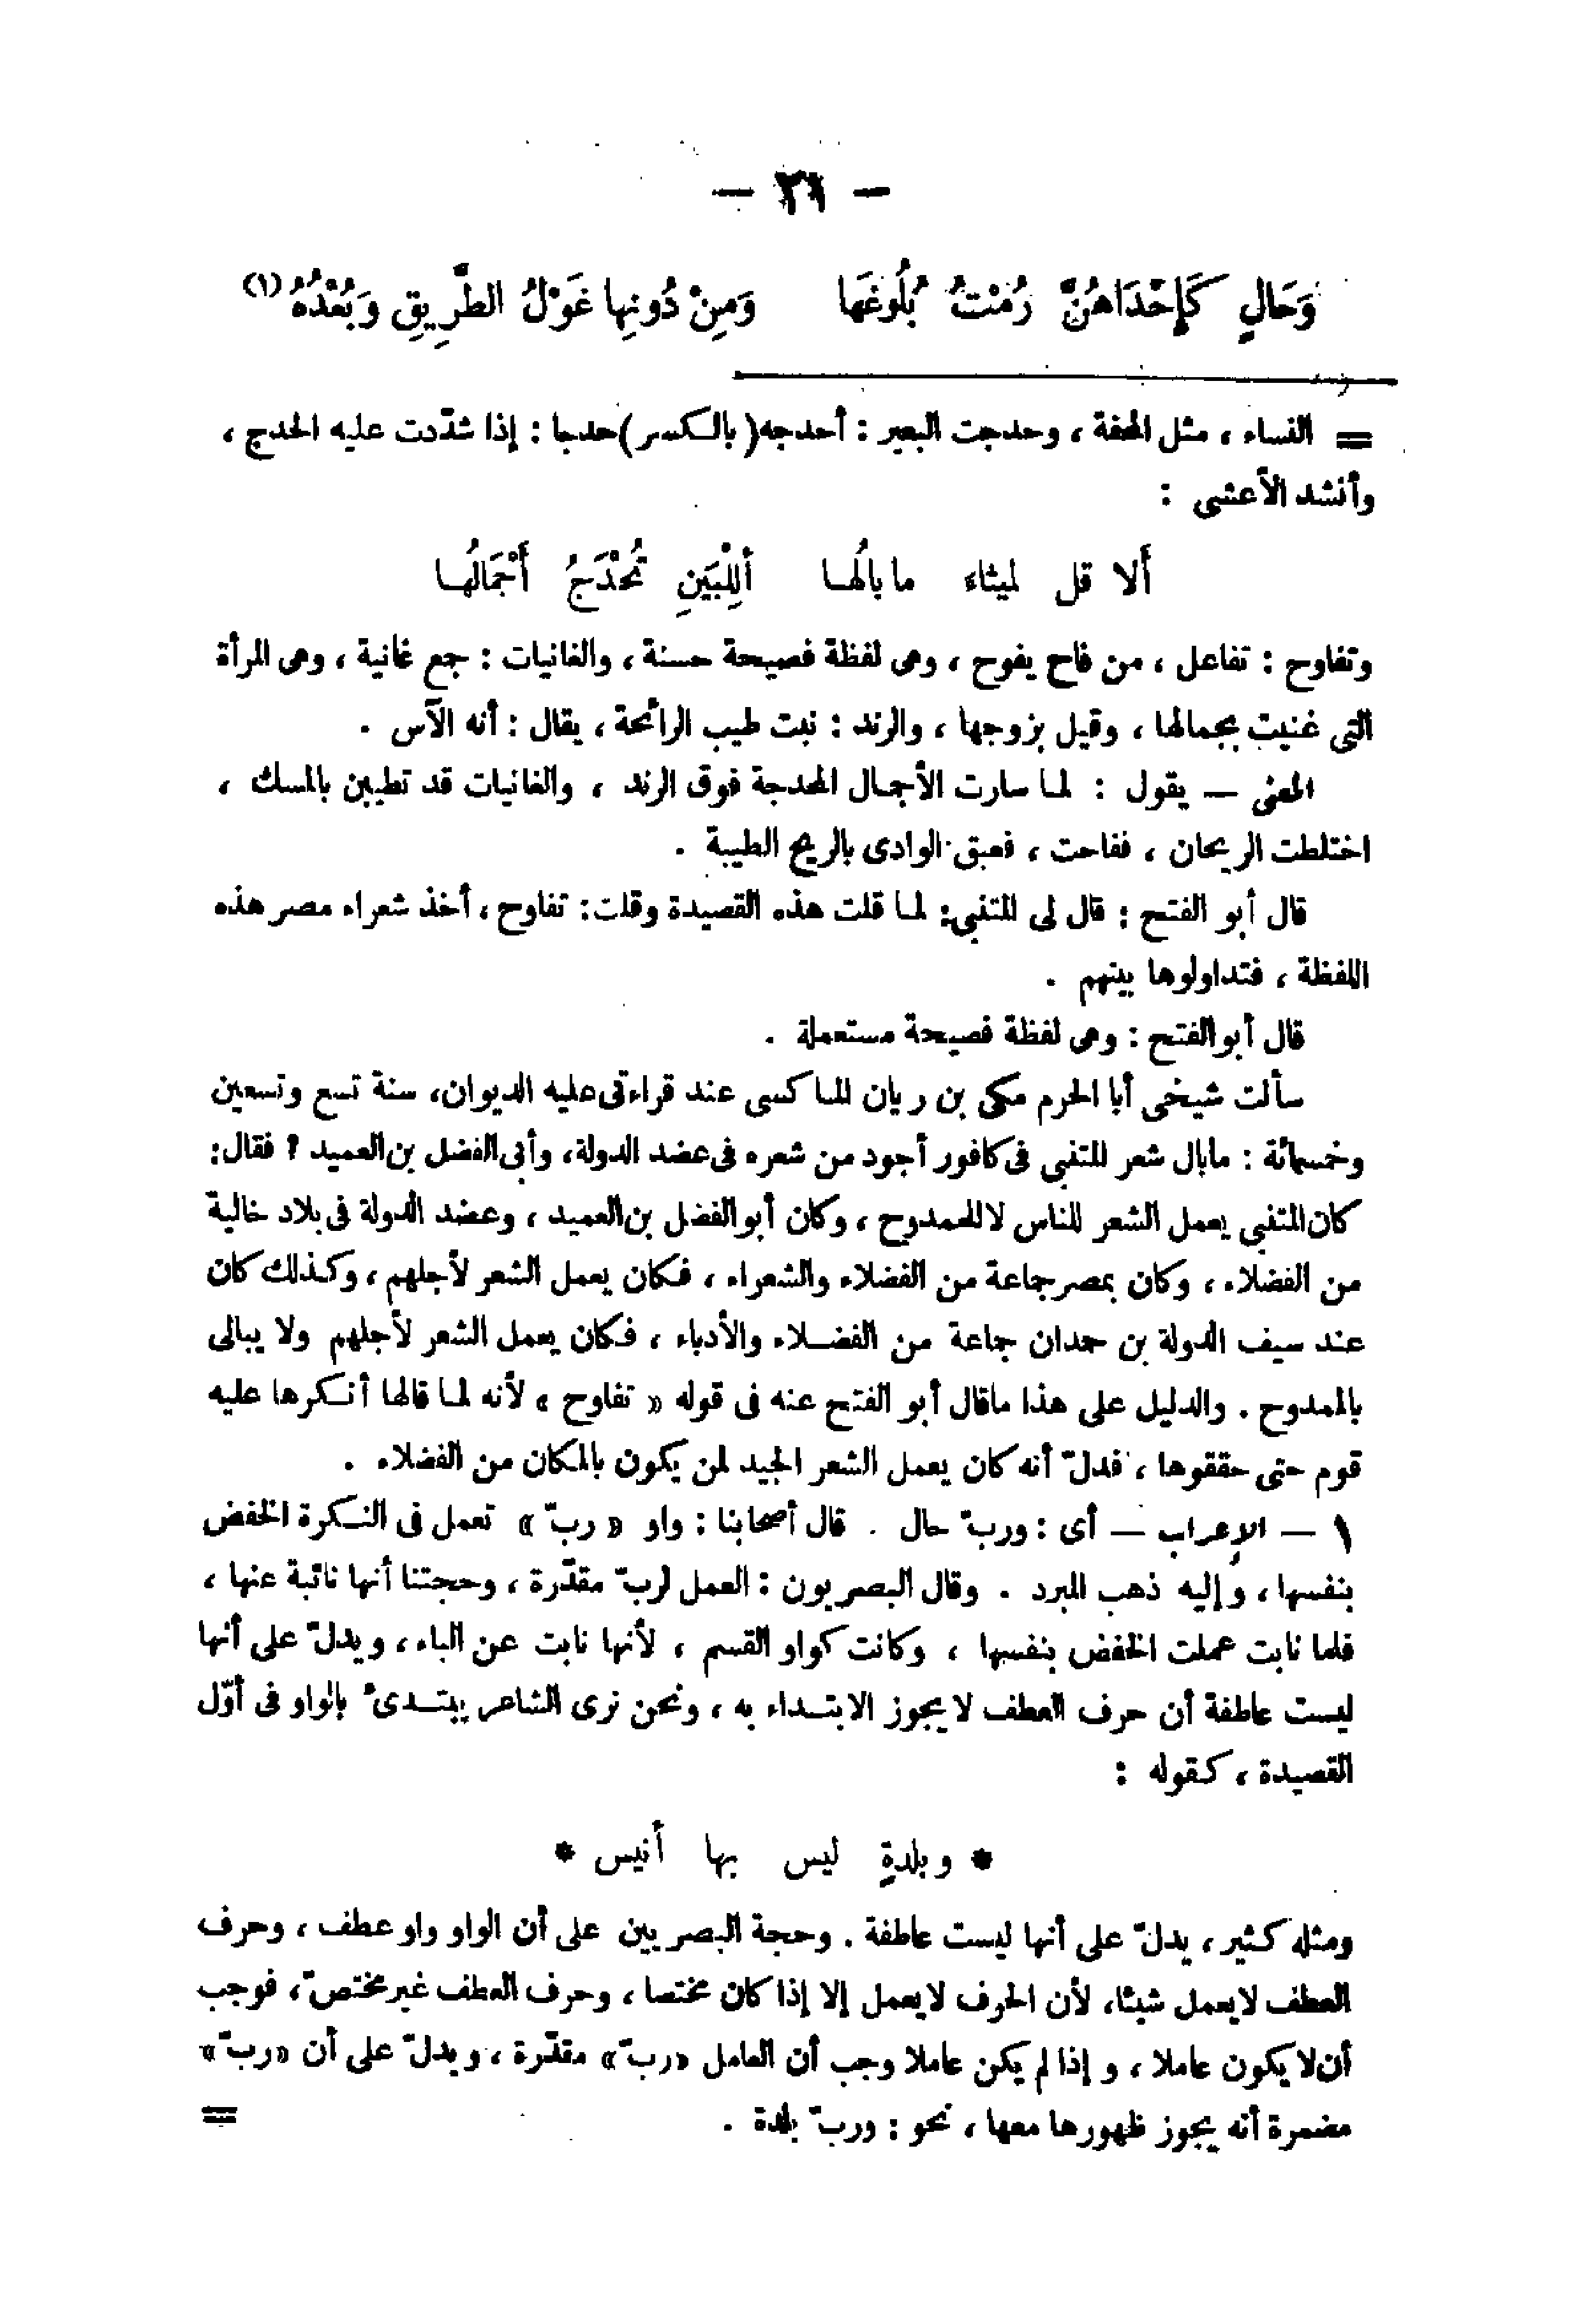 — ٢٦ —
وَحَالٍ كَإِحْدَاهُنَّ رُمْتُ بُلُوغَهَا وَمِنْ دُونِها غَوْلُ الطَّرِيقِ وَبُعْدُهُ (١)
= النساء ، مثل المحفة ، وحدجت البعير : أحدجه (بالكسر) حدجا : إذا شدّدت عليه الحدج ،
وأنشد الأعشى :
أَلا قل لميثاء ما بالُها أَلِلْبَيْنِ تُحْدَجُ أَجْمَالُها
وتفاوح : تفاعل ، من فاح يفوح ، وهى لفظة فصيحة حسنة ، والغانيات : جمع غانية ، وهى المرأة
التى غنيت بجمالها ، وقيل بزوجها ، والرند : نبت طيب الرائحة ، يقال : أنه الآس .
المعنى — يقول : لما سارت الأجمال المحدجة فوق الرند ، والغانيات قد تطيبن بالمسك ،
اختلطت الريحان ، ففاحت ، فعبق الوادى بالريح الطيبة .
قال أبو الفتح : قال لى المتنبى: لما قلت هذه القصيدة وقلت: تفاوح ، أخذ شعراء مصر هذه
اللفظة ، فتداولوها بينهم .
قال أبو الفتح : وهى لفظة فصيحة مستعملة .
سألت شيخى أبا الحرم مكى بن ريان الماكسى عند قراءتى عليه الديوان، سنة تسع وتسعين
وخسمائة : مابال شعر المتنبى فى كافور أجود من شعره فى عضد الدولة، وأبى الفضل بن العميد ؟ فقال:
كان المتنبى يعمل الشعر للناس لا للممدوح ، وكان أبو الفضل بن العميد ، وعضد الدولة فى بلاد خالية
من الفضلاء ، وكان بمصر جماعة من الفضلاء والشعراء ، فكان يعمل الشعر لأجلهم ، وكذلك كان
عند سيف الدولة بن حمدان جماعة من الفضلاء والأدباء ، فكان يعمل الشعر لأجلهم ولا يبالى
بالممدوح . والدليل على هذا ماقال أبو الفتح عنه فى قوله « تفاوح » لأنه لما قالها أنكرها عليه
قوم حتى حققوها ، فدلّ أنه كان يعمل الشعر الجيد لمن يكون بالمكان من الفضلاء .
١ — الإعراب — أى : وربّ حال . قال أصحابنا : واو « ربّ » تعمل فى النكرة الخفض
بنفسها ، وإليه ذهب المبرد . وقال البصريون : العمل لربّ مقدّرة ، وحجتنا أنها نائبة عنها ،
فلما نابت عملت الخفض بنفسها ، وكانت كواو القسم ، لأنها نابت عن الباء ، ويدلّ على أنها
ليست عاطفة أن حرف العطف لا يجوز الابتداء به ، ونحن نرى الشاعر يبتدئ بالواو فى أوّل
القصيدة ، كقوله :
* وبلدةٍ ليس بها أنيس *
ومثله كثير ، يدلّ على أنها ليست عاطفة . وحجة البصريين على أن الواو واو عطف ، وحرف
العطف لايعمل شيئا، لأن الحرف لايعمل إلا إذا كان مختصا ، وحرف العطف غير مختصّ ، فوجب
أن لا يكون عاملا ، وإذا لم يكن عاملا وجب أن العامل «ربّ» مقدّرة ، ويدلّ على أن «ربّ»
مضمرة أنه يجوز ظهورها معها ، نحو : وربّ بلدة . =